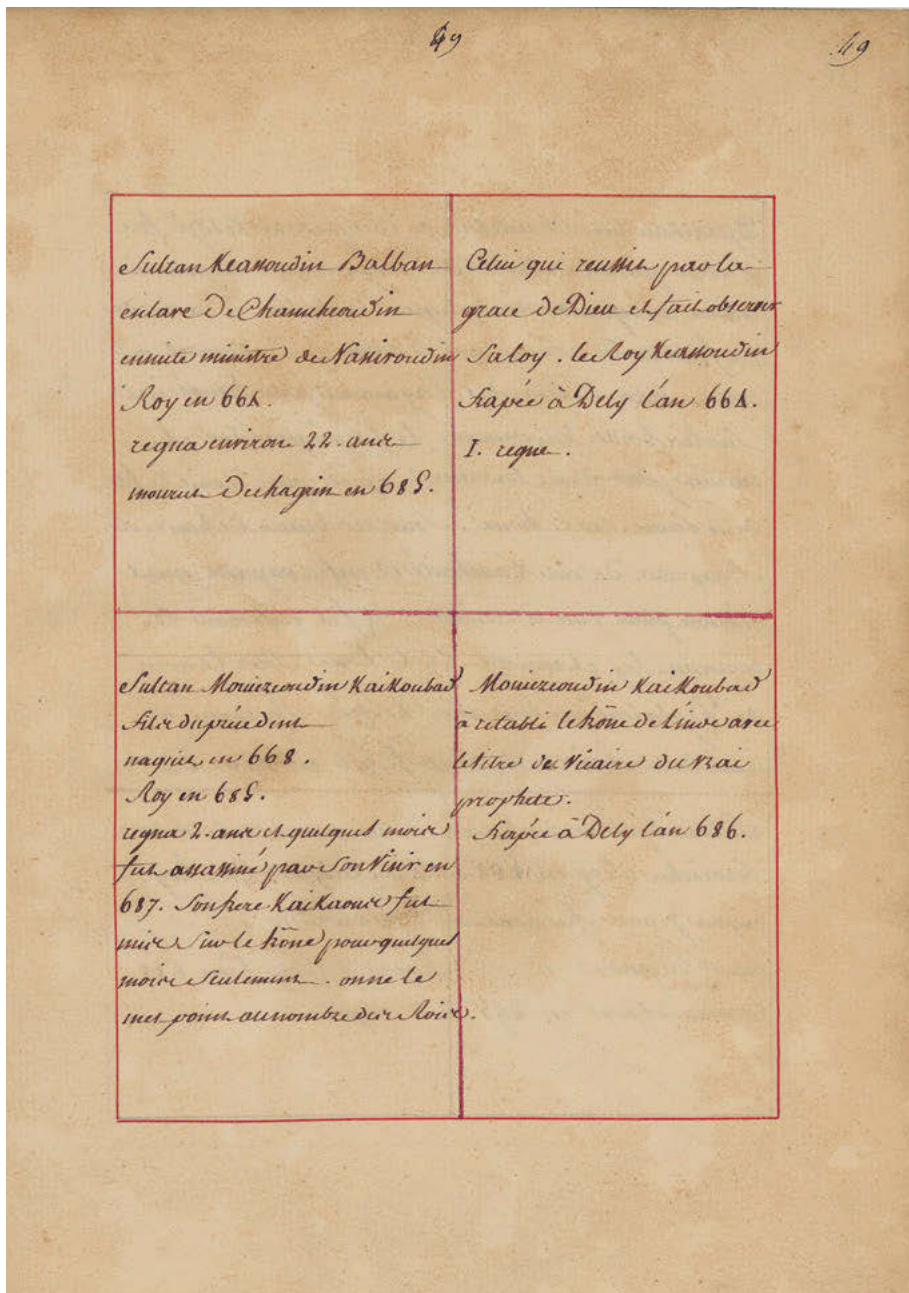 49
49
Sultan Keassoudin Balban
esclave De Chamcheoudin
ensuite ministre de Nassiroudin
Roy en 664.
regna environ 22. ans
mourut De chagrin en 685.
Celui qui reussit par la
grace de Dieu et fait observer
Sa loy. le Roy Keassoudin
frapée à Dely l'an 664.
I. regne.
Sultan Mouiezeoudin KaiKoubad
fils du précedent
naquit en 668.
Roy en 685.
regna 2. ans et quelques mois
fut assassiné par Son Visir en
687. Son frere KaiKaous fut
mis Sur le trône pour quelques
mois Seulement. on ne le
met point au nombre des Rois.
Mouiezeoudin KaiKoubad
à retabli le trône de l'inde avec
le titre de Vicaire du vrai
prophete.
frapée à Dely l'an 686.